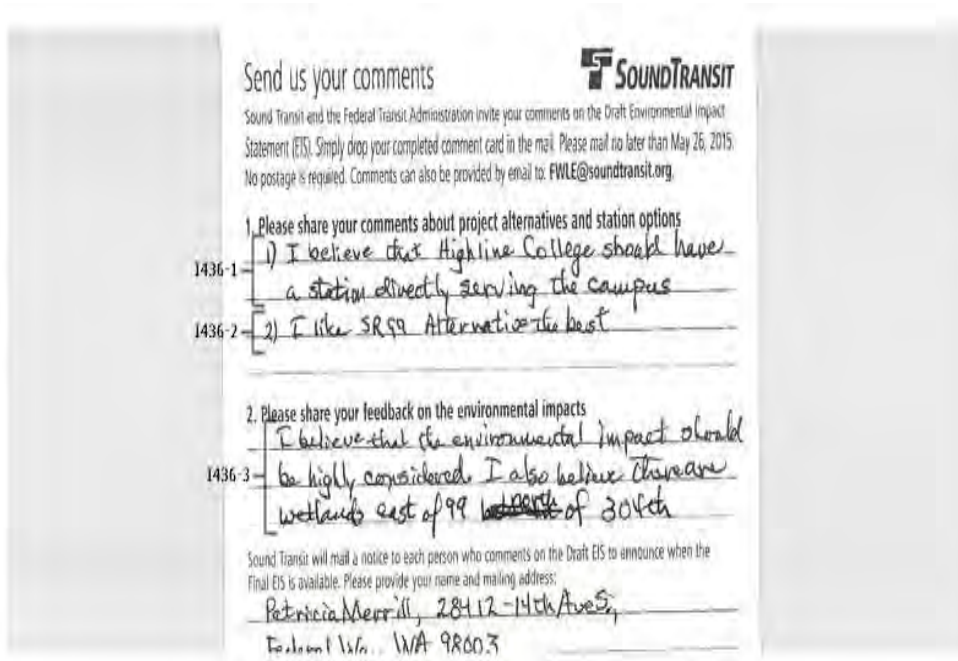 Send us your comments
SOUNDTRANSIT
Sound Transit and the Federal Transit Administration invite your comments on the Draft Environmental Impact
Statement (EIS). Simply drop your completed comment card in the mail. Please mail no later than May 26, 2015.
No postage is required. Comments can also be provided by email to: FWLE@soundtransit.org.
1. Please share your comments about project alternatives and station options
1) I believe that Highline College should have
1436-1
a station directly serving the campus
1436-2 2) I like SR99 Alternative the best
2. Please share your feedback on the environmental impacts
I believe that the environmental impact should
1436-3 be highly considered. I also believe there are
wetlands east of 99 north of 304th
Sound Transit will mail a notice to each person who comments on the Draft EIS to announce when the
Final EIS is available. Please provide your name and mailing address:
Patricia Merrill, 28412-14th Ave S,
Federal Way, WA 98003